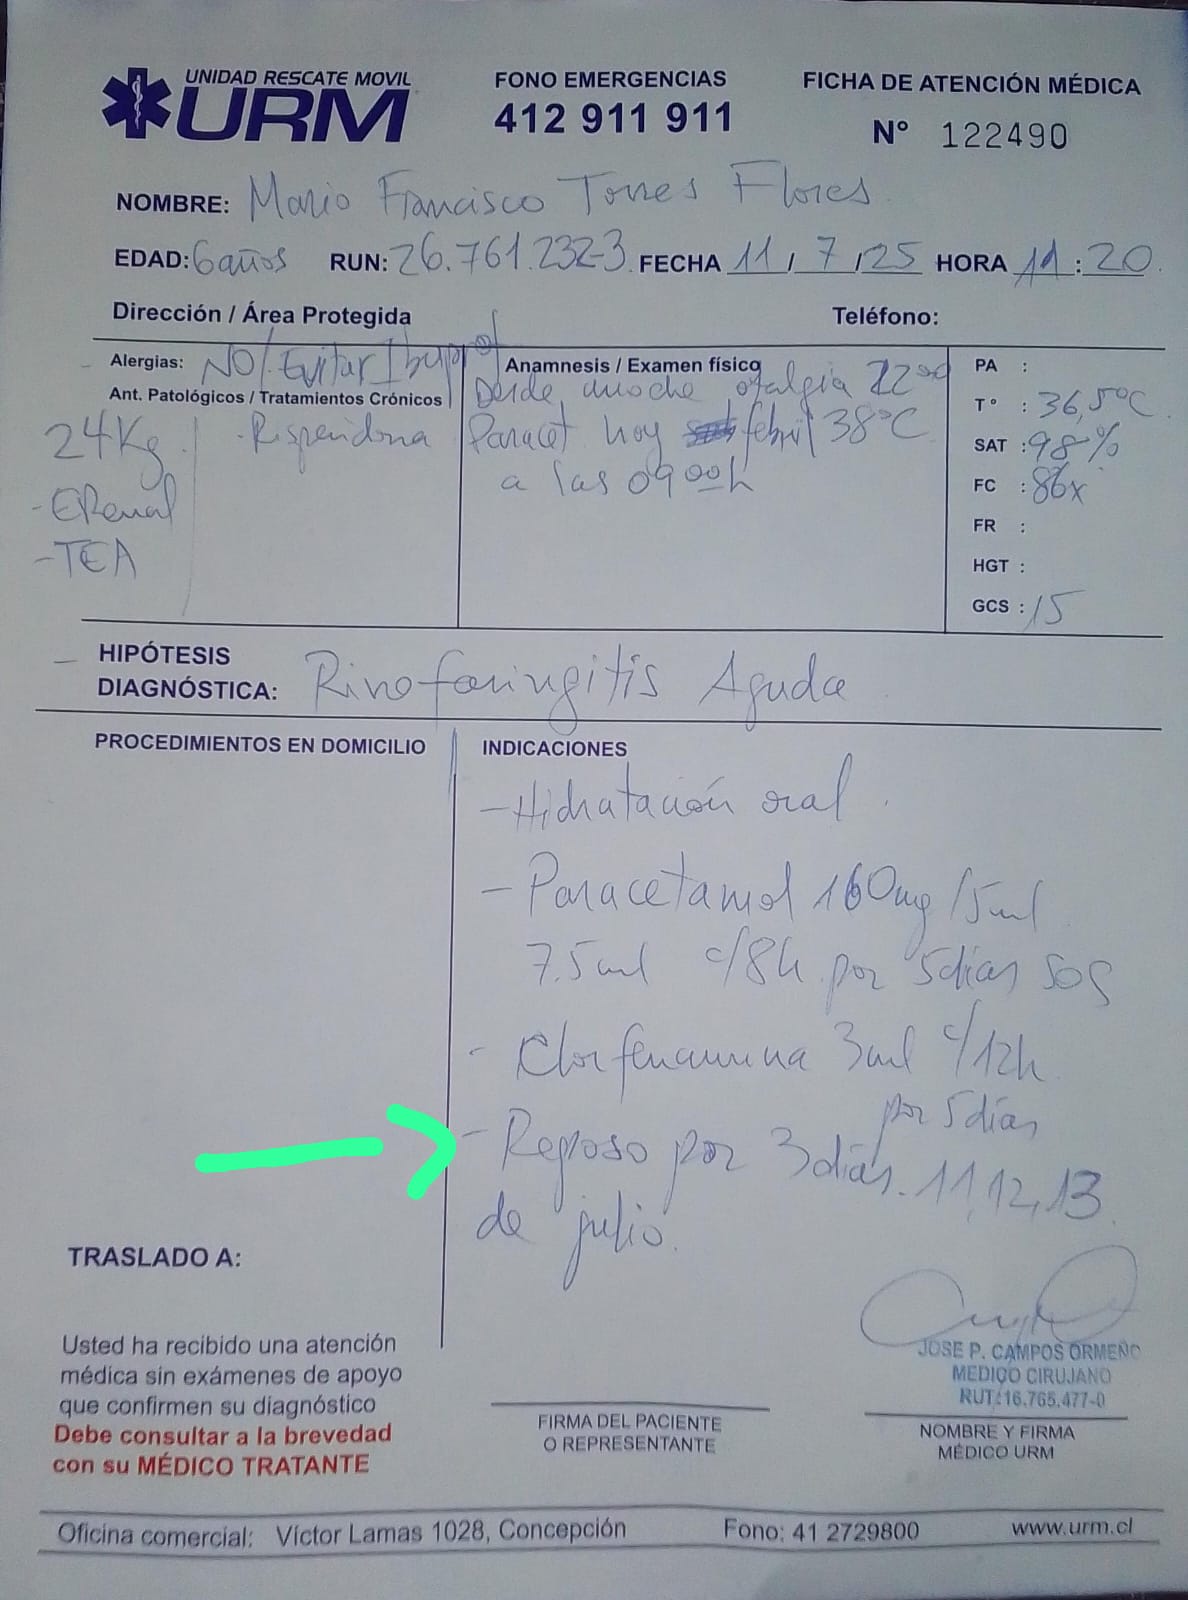 UNIDAD RESCATE MOVIL
URM
FONO EMERGENCIAS
412 911 911
FICHA DE ATENCIÓN MÉDICA
N° 122490
NOMBRE: Mario Francisco Torres Flores
EDAD: 6 años RUN: 26.761.232-3 FECHA 11/7/25 HORA 11:20
Dirección / Área Protegida
Teléfono:
Alergias: NO/. Evitar Ibuprof
Ant. Patológicos / Tratamientos Crónicos
24Kg
- ERenal
- TEA
- Risperidona
Anamnesis / Examen físico
Desde anoche otalgia 22ºº
Paracet hoy febril 38°C
a las 09ººh
PA :
T° : 36,5°C
SAT : 98%
FC : 86x
FR :
HGT :
GCS : 15
HIPÓTESIS
DIAGNÓSTICA: Rinofaringitis Aguda
PROCEDIMIENTOS EN DOMICILIO
INDICACIONES
- Hidratación oral.
- Paracetamol 160mg/5ml
7.5ml c/8h por 5días SOS
- Clorfenamina 3ml c/12h
por 5días
- Reposo por 3días. 11,12,13
de julio.
TRASLADO A:
Usted ha recibido una atención
médica sin exámenes de apoyo
que confirmen su diagnóstico
Debe consultar a la brevedad
con su MÉDICO TRATANTE
FIRMA DEL PACIENTE
O REPRESENTANTE
JOSE P. CAMPOS ORMEÑO
MEDICO CIRUJANO
RUT: 16.765.477-0
NOMBRE Y FIRMA
MÉDICO URM
Oficina comercial: Víctor Lamas 1028, Concepción Fono: 41 2729800 www.urm.cl